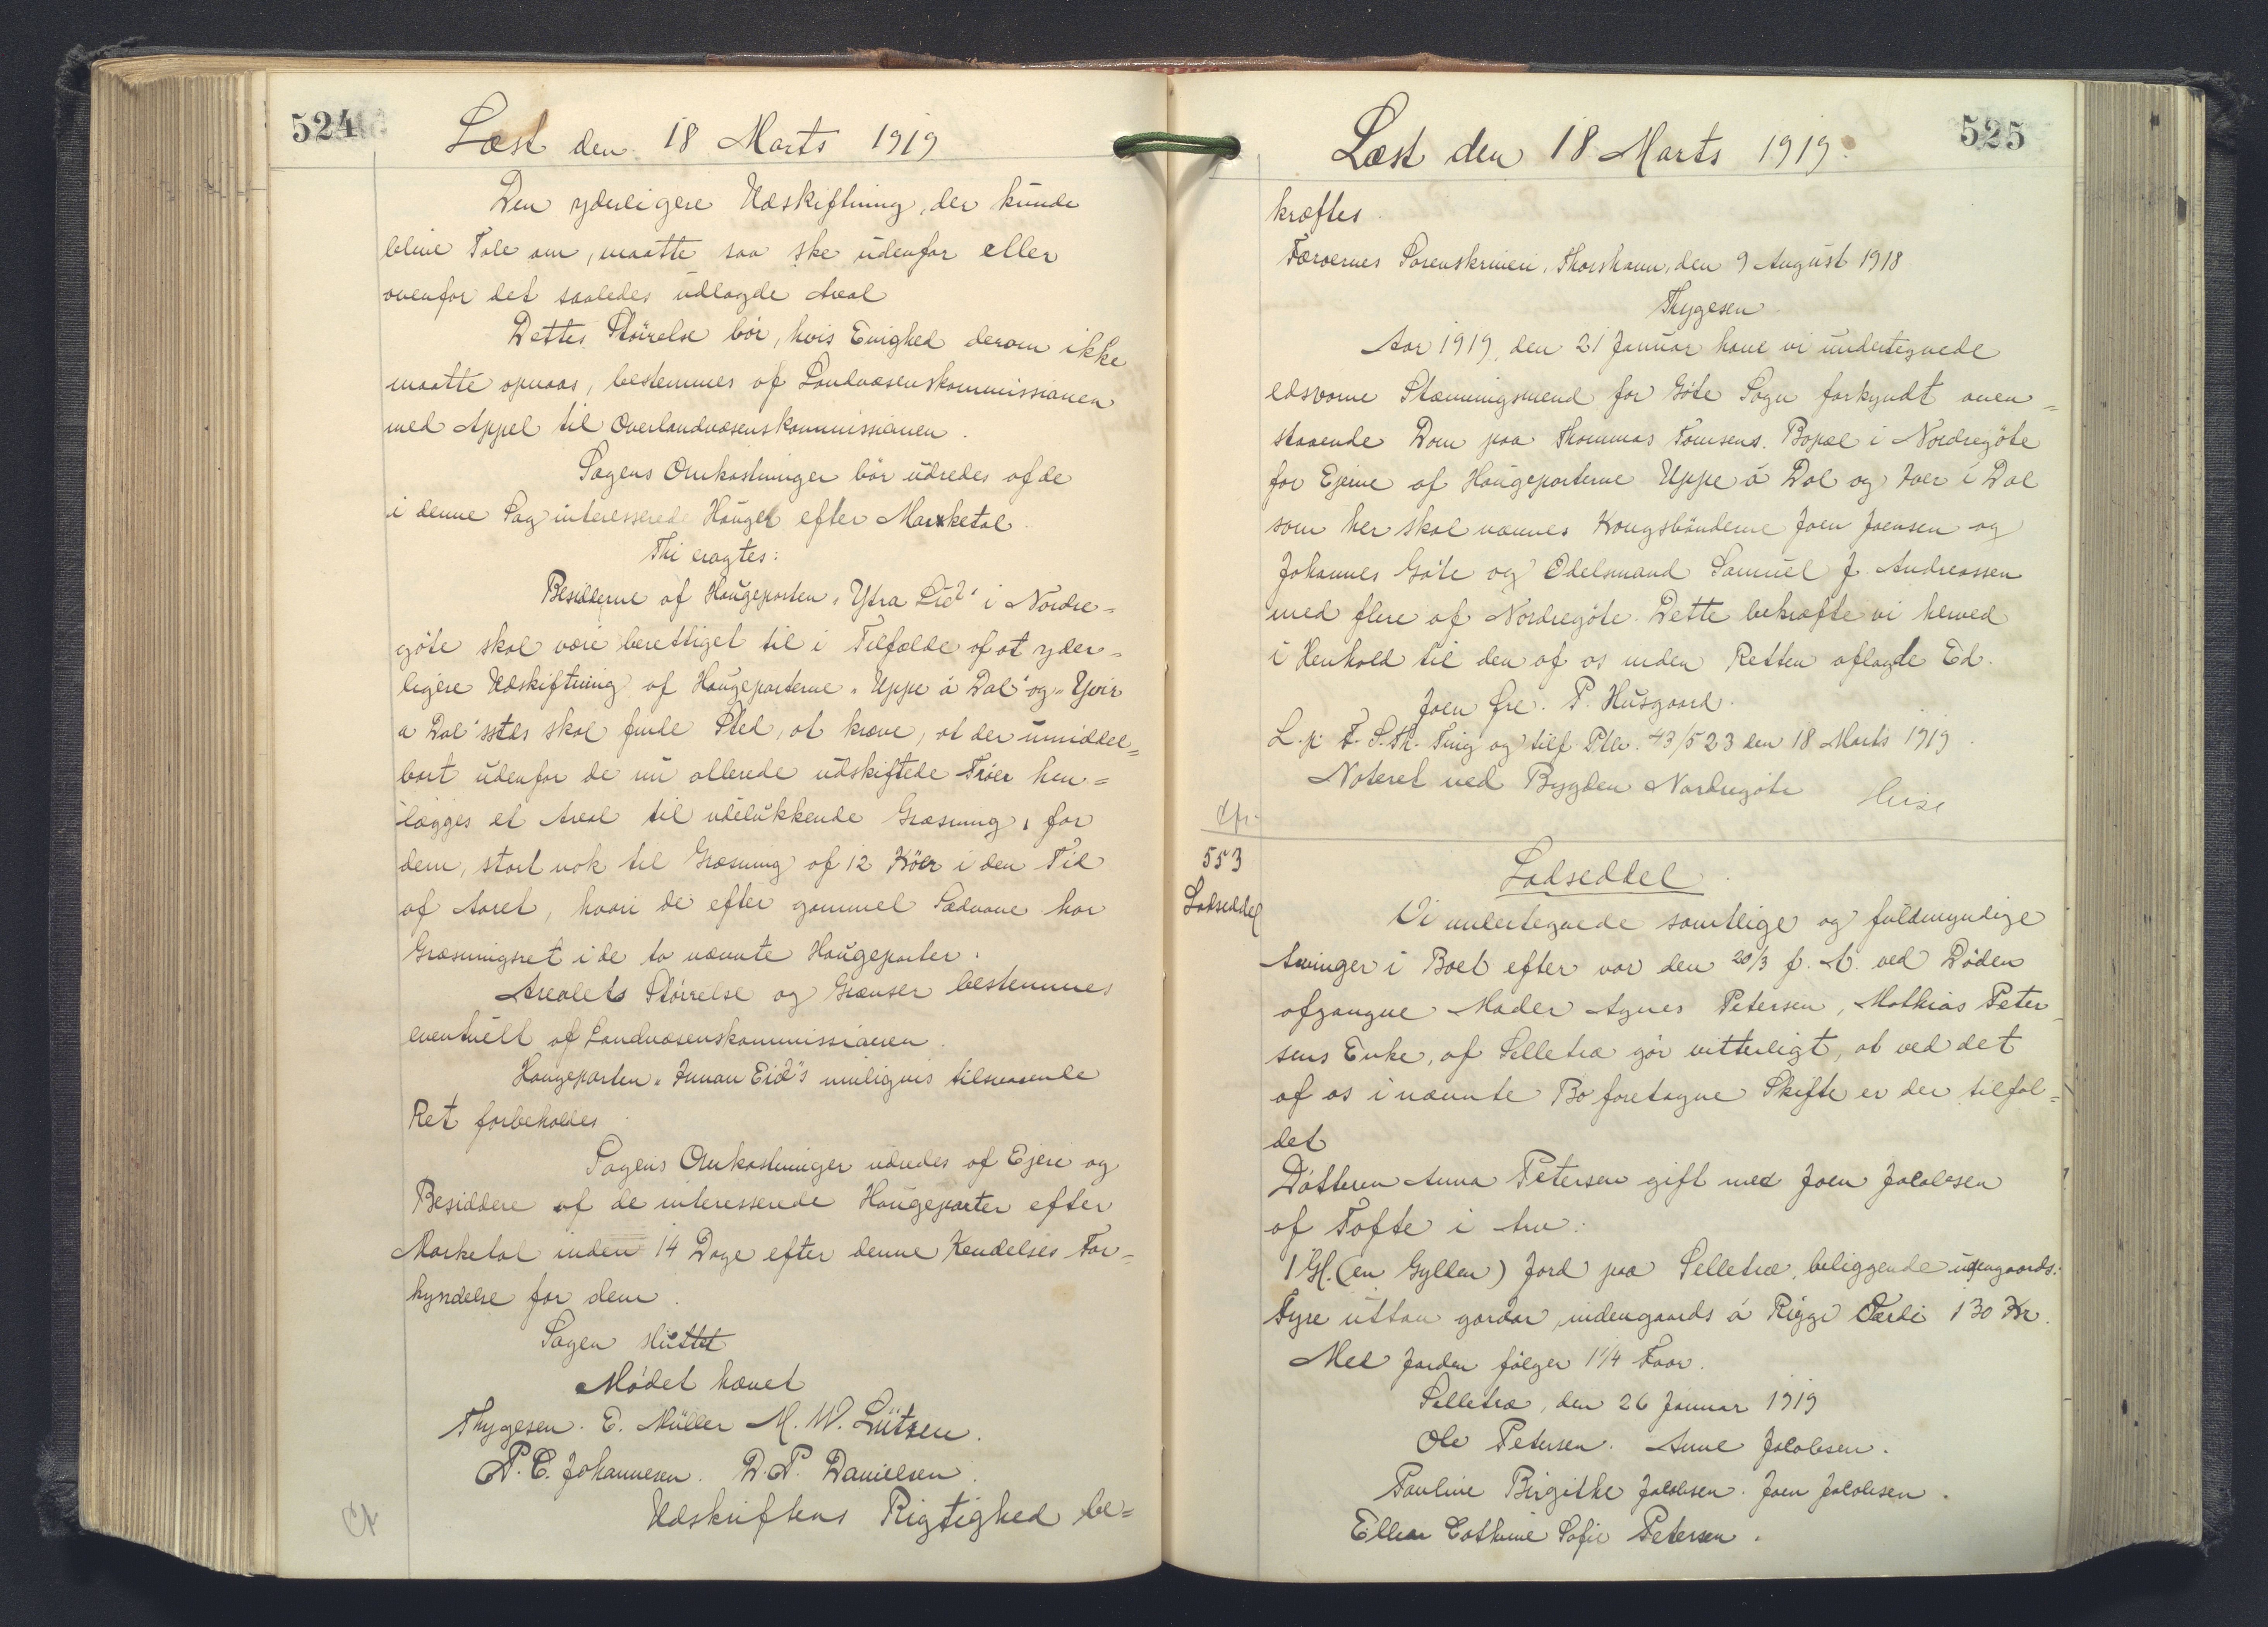 524
Læst den 18 Marts 1919
Den yderligere Udskiftning, der kunde
blive Tale om, maatte saa ske udenfor eller
ovenfor det saaledes udlagde Areal
Dettes Störrelse bör, hvis Enighed derom ikke
maatte opnaas, bestemmes af Landvæsenskommissionen
med Appel til Overlandvæsenskommissionen.
Sagens Omkostninger bör udredes af de
i denne Sag interesserede Hauger efter Marketal.
Thi eragtes:
Besidderne af Haugeparten „Ytra Eid" i Nordre=
göte skal være berettiget til i Tilfælde af at yder=
ligere Udskiftning af Haugeparterne „Uppe á Dal" og „Yvir
a Dal" sstds skal finde Sted, at kræve, at der umiddel=
bart udenfor de nu allerede udskiftede Tröer hen=
lægges et Areal til udelukkende Græsning, for
dem, stort nok til Græsning af 12 Köer i den Tid
af Aaret, hvori de efter gammel Sædvane har
Græsningsret i de to nævnte Haugeparter.
Arealets Störrelse og Grænser bestemmes
eventuelt af Landvæsenskommissionen.
Haugeparten „Innan Eid"s muligvis tilsvarende
Ret forbeholdes.
Sagens Omkostninger udredes af Ejere og
Besiddere af de interesserede Haugeparter efter
Marketal inden 14 Dage efter denne Kendelses For=
kyndelse for dem.
Sagen sluttet
Mödet hævet
Thygesen. E. Müller M. W. Lützen.
P. C. Johannesen. D. P. Danielsen.
Udskriftens Rigtighed be=
525
Læst den 18 Marts 1919.
kræftes.
Færoernes Sorenskriveri, Thorshavn, den 9 August 1918
Thygesen.
Aar 1919, den 21 Januar have vi undertegnede
edsvorne Stævningsmænd for Göte Sogn forkyndt oven=
staaende Dom paa Thommas Tomsens Bopæl i Nordregöte
for Ejerne af Haugeparterne Uppe á Dal og Iver i Dal
som her skal nævnes Kongsbönderne Joen Joensen og
Johannes Göte og Odelsmand Samuel J. Andreassen
med flere af Nordregöte. Dette bekræfte vi herved
i Henhold til den af os inden Retten aflagde Ed.
Joen Øre. P. Husgaard.
L. p. F. S. Th. Ting og tilf Pllr. 43/523 den 18 Marts 1919.
Noteret ved Bygden Nordregöte
553
Lodseddel
Lodseddel.
Vi undertegnede samtlige og fuldmyndige
Arvinger i Boet efter vor den 20/3 f. A. ved Döden
afgangne Moder Agnes Petersen, Mathias Peter=
sens Enke, af Selletræ gör vitterligt, at ved det
af os i nævnte Bo foretagne Skifte er der tilfal=
det
Dötteren Anna Petersen gift med Joen Jacobsen
af Tofte i Arv:
1 Gl. (en Gylden) Jord paa Selletræ, beliggende udengaards:
Fyre uttan gardar, indengaards á Riggi Værdi 130 Kr.
Med Jorden fölger 1 1/4 Faar.
Selletræ, den 26 Januar 1919
Ole Petersen. Anne Jacobsen.
Pauline Birgithe Jacobsen. Joen Jacobsen.
Ellen Cathrine Sofie Petersen.